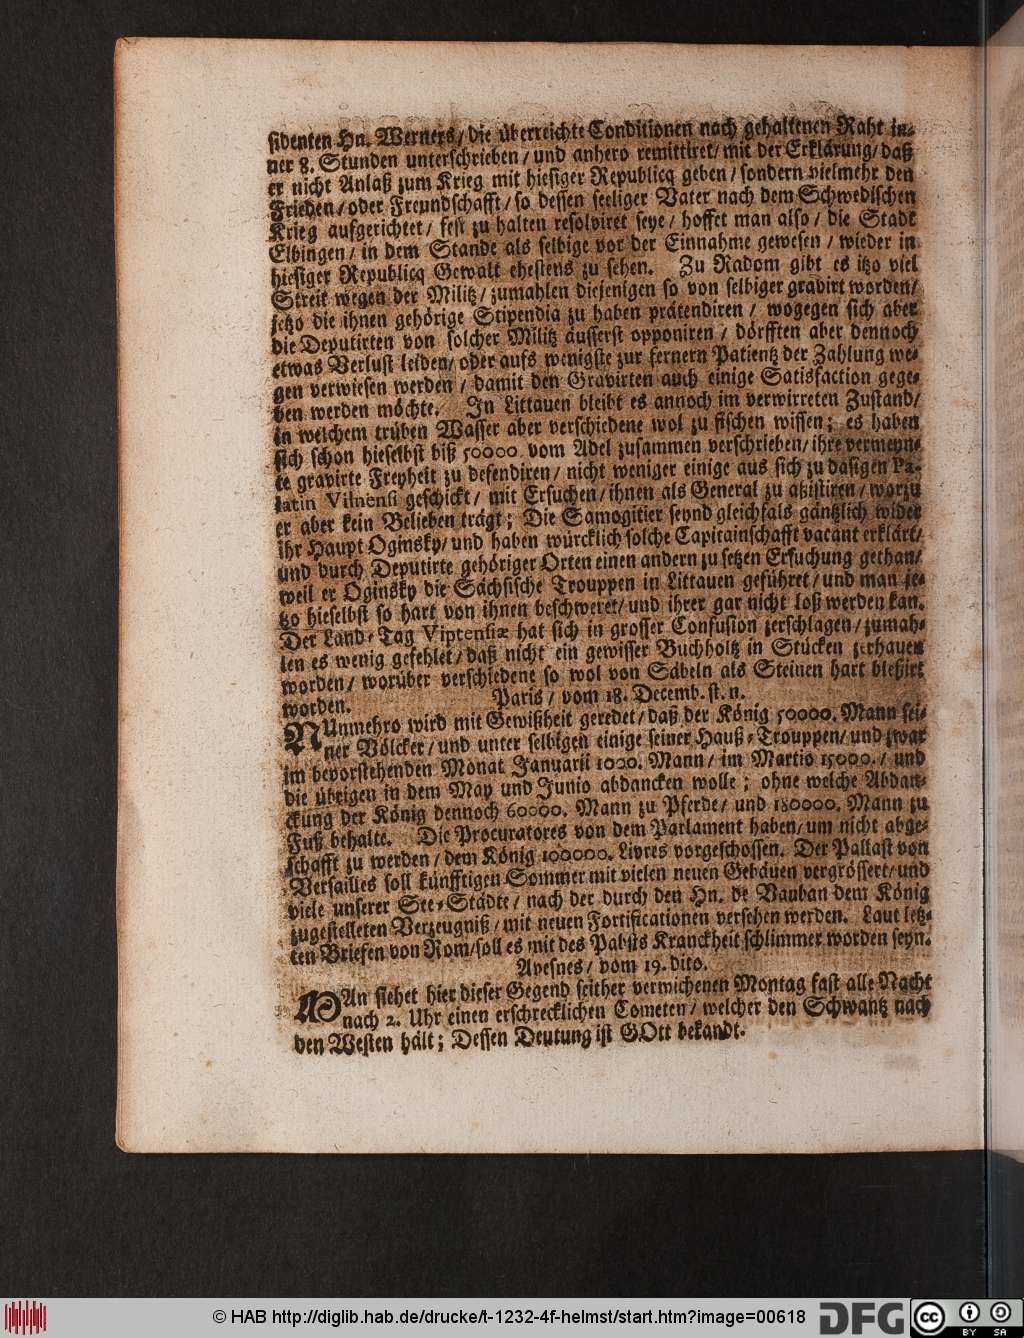 sidenten Hn. Werners / die überreichte Conditionen nach gehaltenen Raht in-
ner 8. Stunden unterschrieben / und anhero remittiret / mit der Erklärung / daß
er nicht Anlaß zum Krieg mit hiesiger Republicq geben / sondern vielmehr den
Frieden / oder Freundschafft / so dessen seeliger Vater nach dem Schwedischen
Krieg aufgerichtet / fest zu halten resolviret seye / hoffet man also / die Stadt
Elbingen / in dem Stande als selbige vor der Einnahme gewesen / wieder in
hiesiger Republicq Gewalt ehestens zu sehen. Zu Radom gibt es itzo viel
Streit wegen der Militz / zumahlen diejenigen so von selbiger gravirt worden /
jetzo die ihnen gehörige Stipendia zu haben prätendiren / wogegen sich aber
die Deputirten von solcher Militz äusserst opponiren / dörfften aber dennoch
etwas Verlust leiden / oder aufs wenigste zur fernern Patientz der Zahlung we-
gen verwiesen werden / damit den Gravirten auch einige Satisfaction gege-
ben werden möchte. In Littauen bleibt es annoch im verwirreten Zustand /
in welchem trüben Wasser aber verschiedene wol zu fischen wissen; es haben
sich schon hieselbst biß 50000 vom Adel zusammen verschrieben / ihre vermeyn-
te gravirte Freyheit zu defendiren / nicht weniger einige aus sich zu dasigen Pa-
latin Vilnensi geschickt / mit Ersuchen / ihnen als General zu aßistiren / worzu
er aber kein Belieben trägt; Die Samogitier seynd gleichfals gäntzlich wider
ihr Haupt Oginsky / und haben würcklich solche Capitainschafft vacant erklärt /
und durch Deputirte gehöriger Orten einen andern zu setzen Ersuchung gethan /
weil er Oginsky die Sächsische Trouppen in Littauen geführet / und man je-
tzo hieselbst so hart von ihnen beschweret / und ihrer gar nicht loß werden kan.
Der Land-Tag Viptensiæ hat sich in grosser Confusion zerschlagen / zumah-
len es wenig gefehlet / daß nicht ein gewisser Buchholtz in Stücken zerhauen
worden / worüber verschiedene so wol von Säbeln als Steinen hart bleßirt
worden. Paris / vom 18. Decemb. st. n.
NUnmehro wird mit Gewißheit geredet / daß der König 50000. Mann sei-
ner Völcker / und unter selbigen einige seiner Hauß-Trouppen / und zwar
im bevorstehenden Monat Januarii 1000. Mann / im Martio 15000. / und
die übrigen in dem May und Junio abdancken wolle; ohne welche Abdan-
ckung der König dennoch 60000. Mann zu Pferde / und 180000. Mann zu
Fuß behalte. Die Procuratores von dem Parlament haben / um nicht abge-
schafft zu werden / dem König 100000. Livres vorgeschossen. Der Pallast von
Versailles soll künfftigen Sommer mit vielen neuen Gebäuen vergrössert / und
viele unserer See-Städte / nach der durch den Hn. de Vauban dem König
zugestelleten Verzeugniß / mit neuen Fortificationen versehen werden. Laut letz-
ten Briefen von Rom / soll es mit des Pabsts Kranckheit schlimmer worden seyn.
Avesnes / vom 19. dito.
MAn siehet hier dieser Gegend seither verwichenen Montag fast alle Nacht
nach 2. Uhr einen erschrecklichen Cometen / welcher den Schwantz nach
den Westen hält; Dessen Deutung ist GOtt bekandt.
© HAB http://diglib.hab.de/drucke/t-1232-4f-helmst/start.htm?image=00618
DFG
cc
BY SA